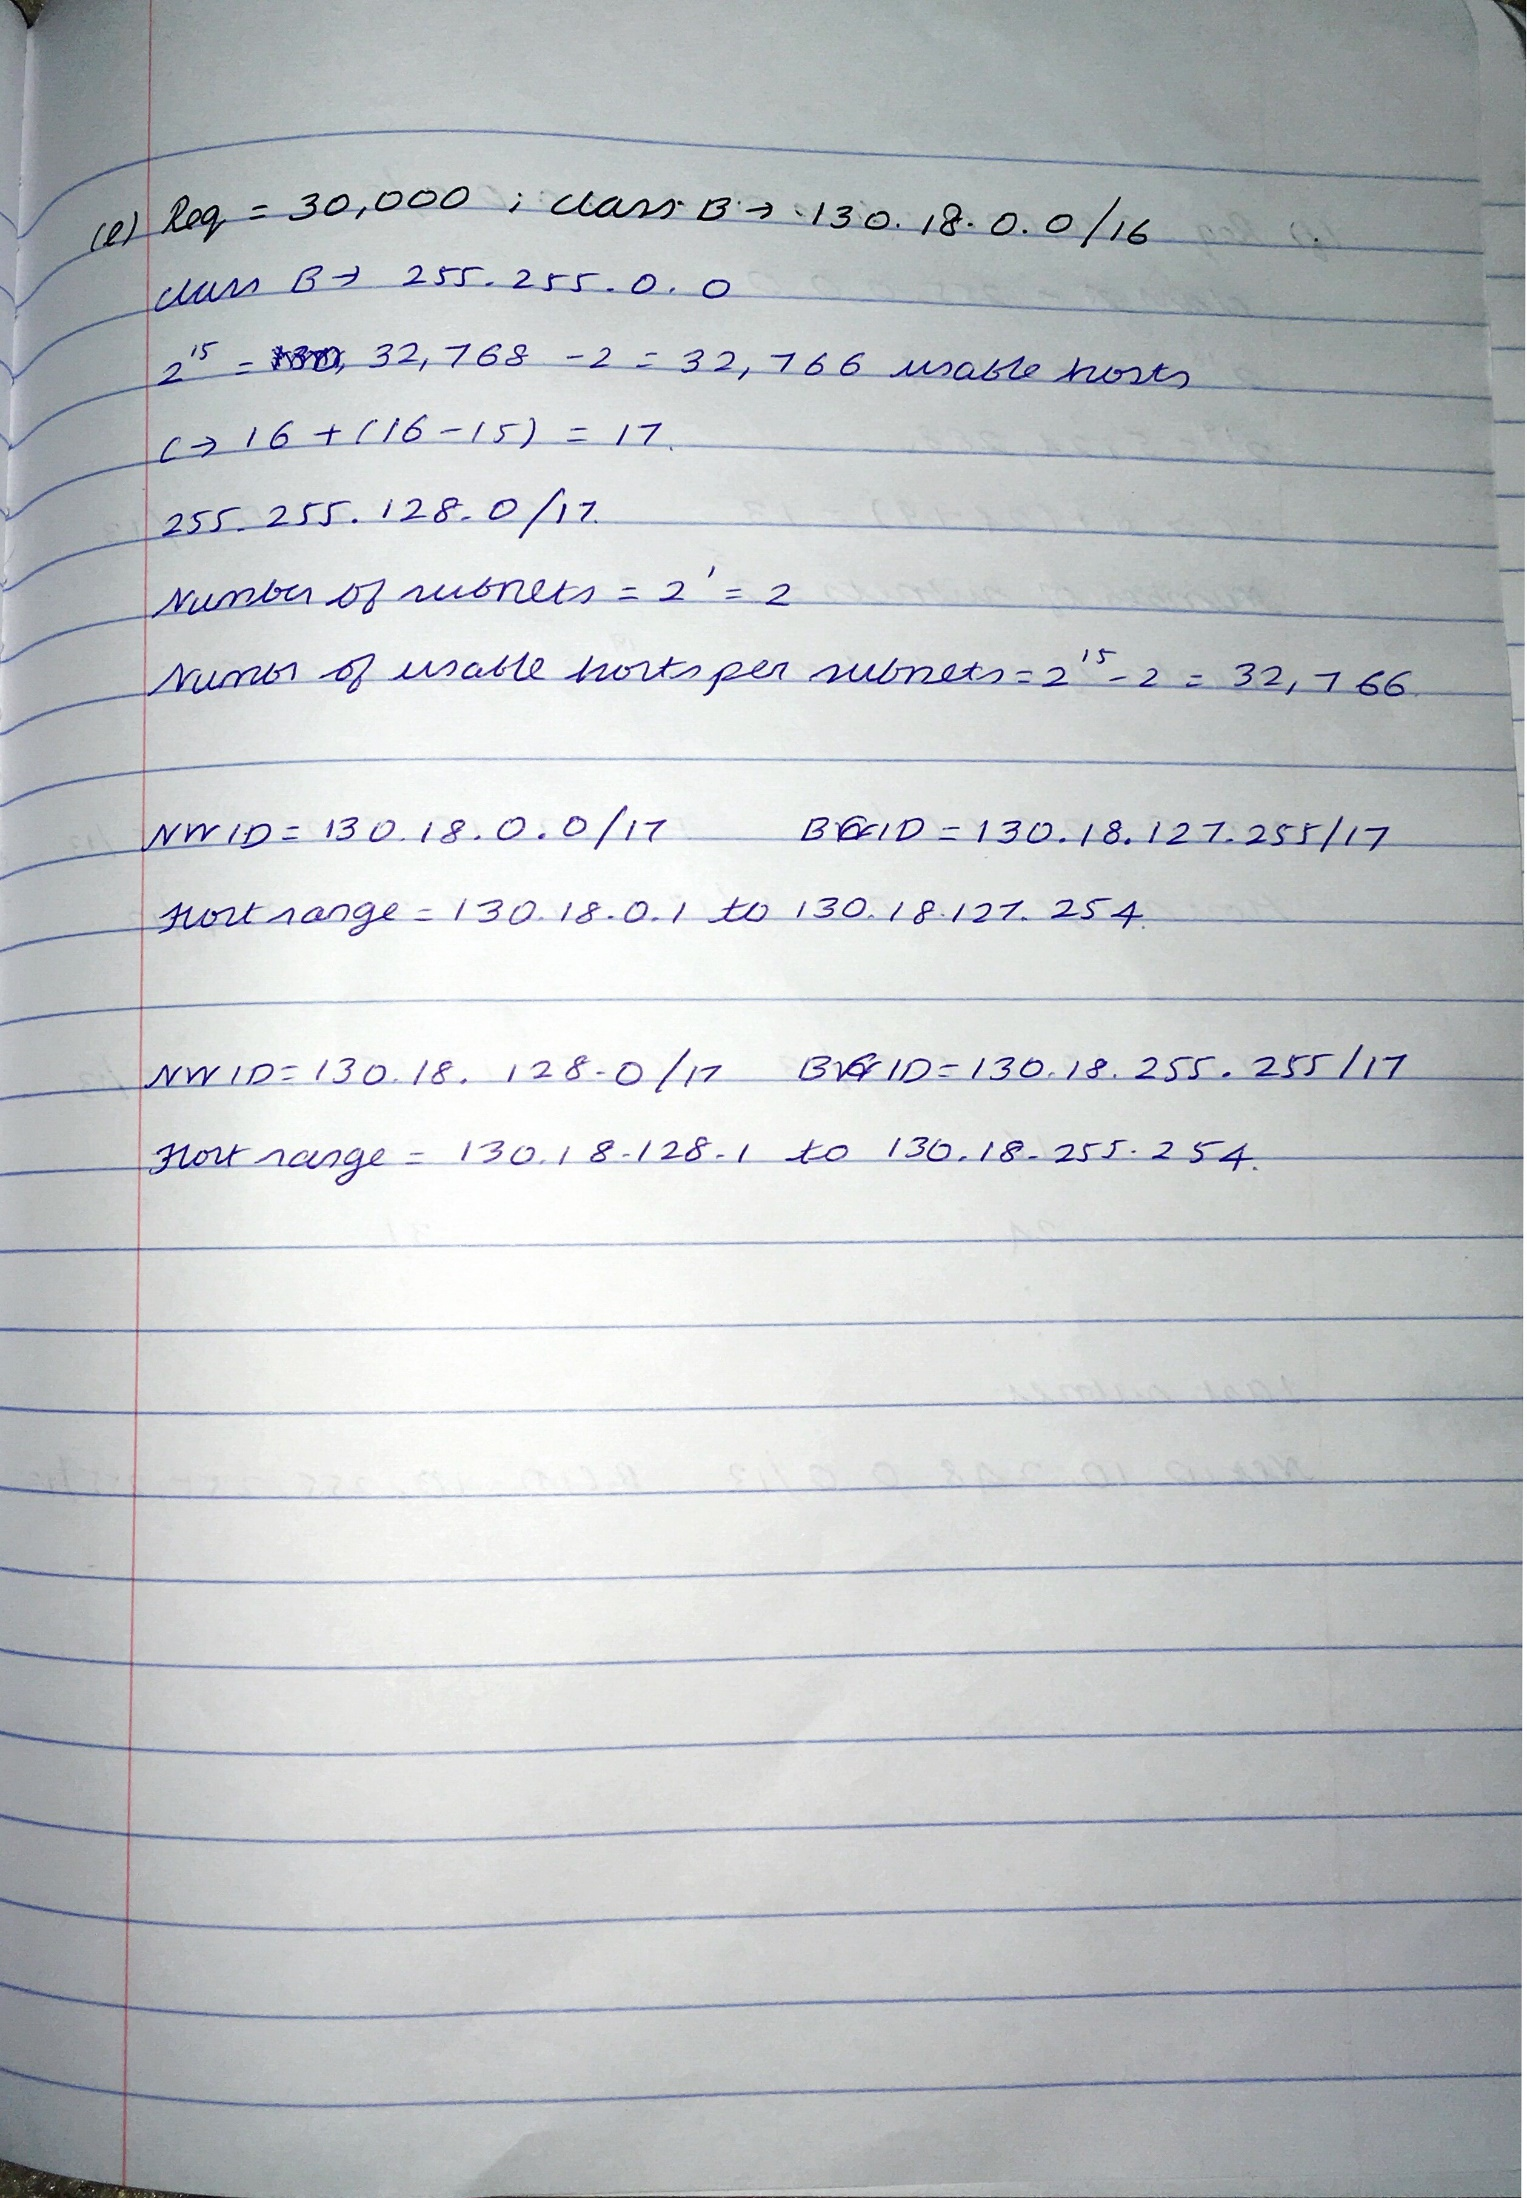 (e) Req = 30,000 ; class B → 130.18.0.0/16
class B → 255.255.0.0
2^15 = 32,768 - 2 = 32,766 usable hosts
C → 16 + (16-15) = 17.
255.255.128.0/17.
Number of subnets = 2^1 = 2
Number of usable hosts per subnets = 2^15 - 2 = 32,766
NWID = 130.18.0.0/17 BCID = 130.18.127.255/17
Host range = 130.18.0.1 to 130.18.127.254.
NWID = 130.18.128.0/17 BCID = 130.18.255.255/17
Host range = 130.18.128.1 to 130.18.255.254.